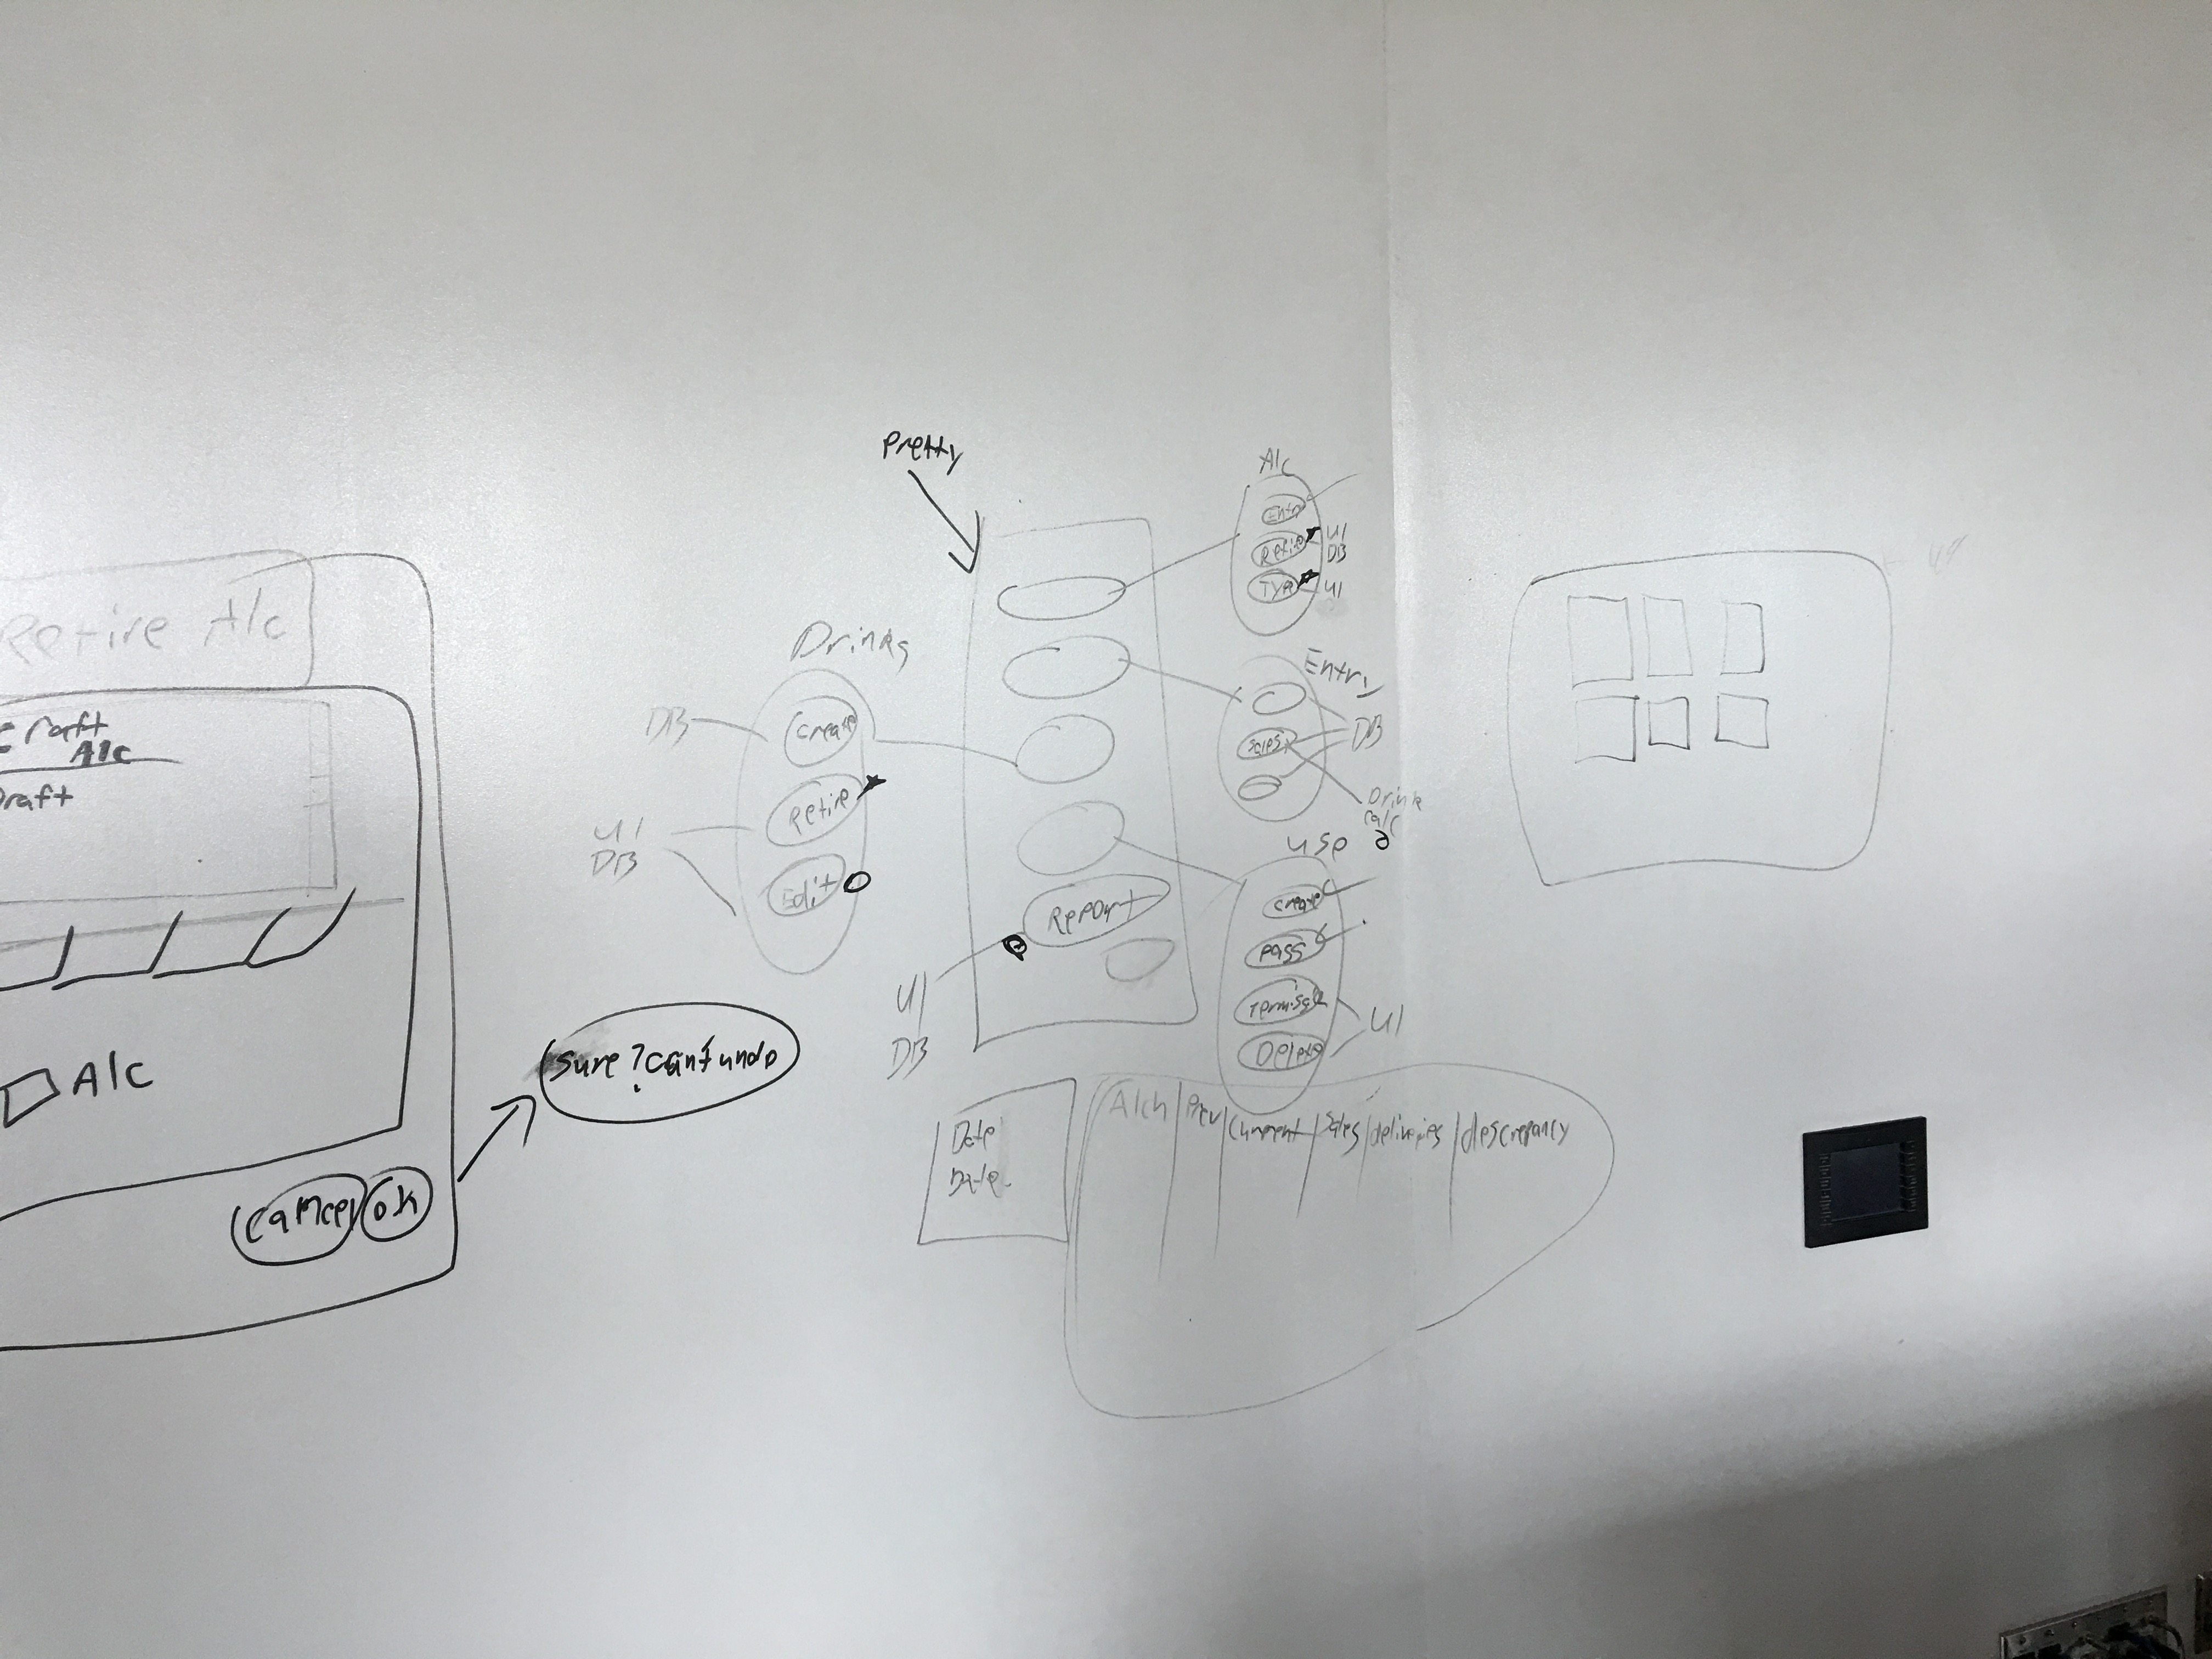 Retire Alc
Craft
Alc
Draft
Alc
Cancel
ok
Sure? can't undo
Pretty
Drinks
DB
Create
Retire
Edit
UI
DB
Report
UI
DB
Alc
Entry
Retire
UI
DB
Type
UI
Entry
Sales
DB
Drink
calc
User
Create
Pass
Delete
UI
Date
Date
Alch
Prev
Current
Sales
deliveries
descrepancy